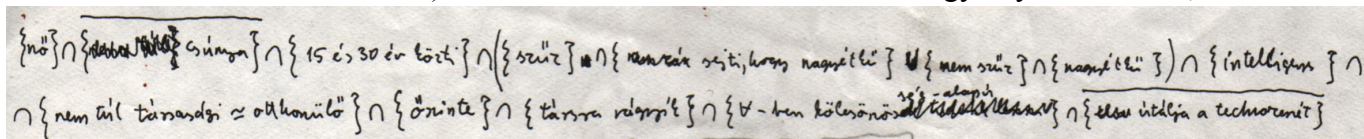 {nő} ∩ {csúnya} ∩ {15 és 30 év közti} ∩ ({szűz} ∩ {sejti, hogy nagyétkű} ∪ {nem szűz} ∩ {nagyétkű}) ∩ {intelligens} ∩
∩ {nem túl társasági ≃ otthonülő} ∩ {őszinte} ∩ {társra vágyik} ∩ {∀-ben kölcsönösség-alapú} ∩ {utálja a technozenét}